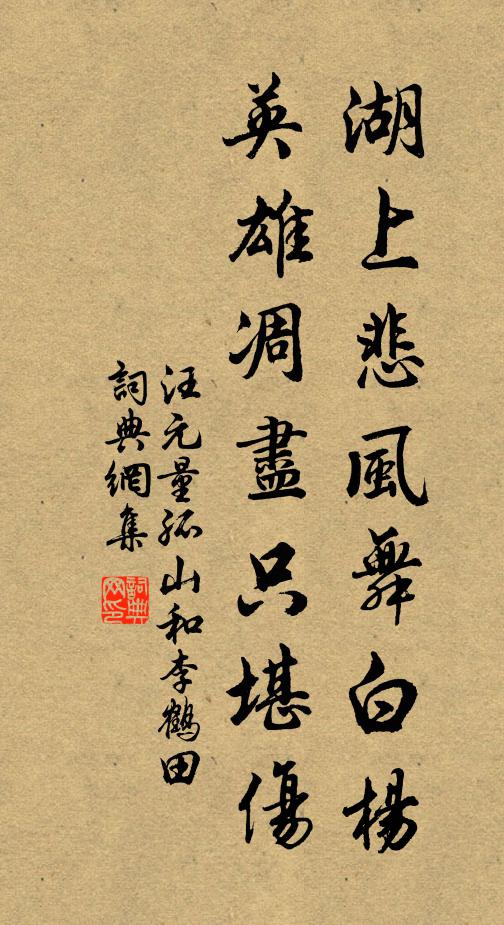 湖上悲風舞白楊
英雄凋盡只堪傷
汪元量孤山和李鶴田
詞典網集
詞典网印